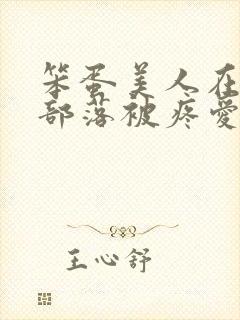 笨蛋美人在
部落被疼爱
王心舒